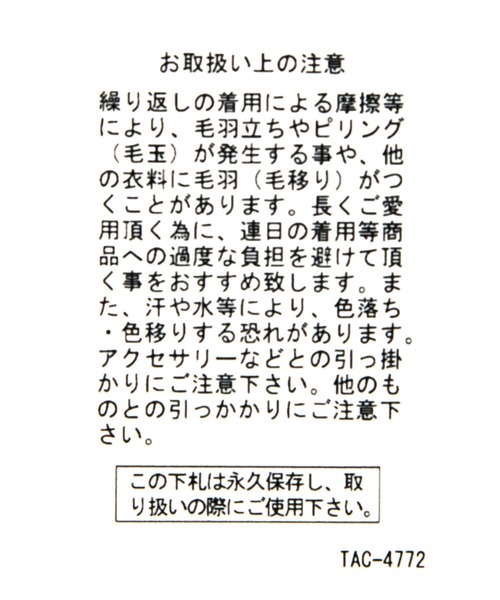 お取扱い上の注意
繰り返しの着用による摩擦等
により、毛羽立ちやピリング
（毛玉）が発生する事や、他
の衣料に毛羽（毛移り）がつ
くことがあります。長くご愛
用頂く為に、連日の着用等商
品への過度な負担を避けて頂
く事をおすすめ致します。ま
た、汗や水等により、色落ち
・色移りする恐れがあります。
アクセサリーなどとの引っ掛
かりにご注意下さい。他のも
のとの引っかかりにご注意下
さい。
この下札は永久保存し、取
り扱いの際にご使用下さい。
TAC-4772